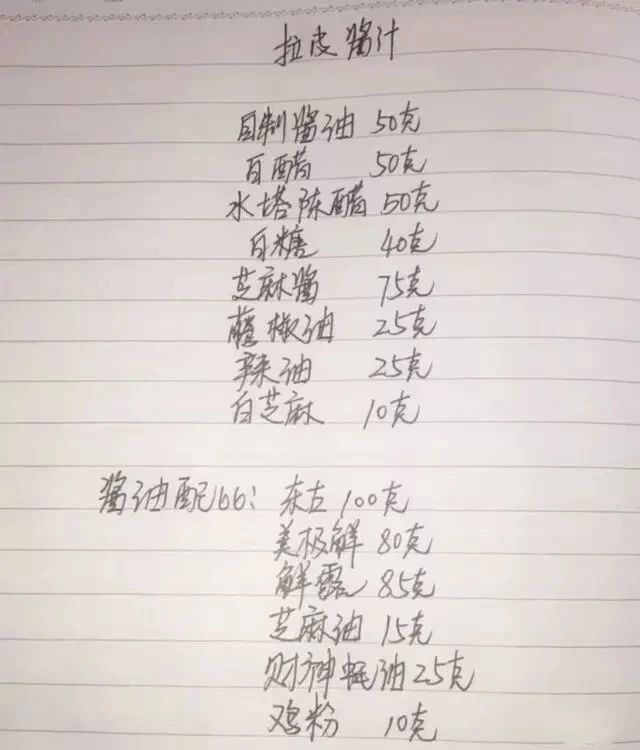 拉皮酱汁
自制酱油 50克
白醋 50克
水塔陈醋 50克
白糖 40克
芝麻酱 75克
藤椒油 25克
辣油 25克
白芝麻 10克
酱油配比: 东古 100克
美极鲜 80克
鲜露 85克
芝麻油 15克
财神蚝油 25克
鸡粉 10克